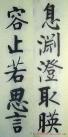 息淵澄取暎
容止若思言